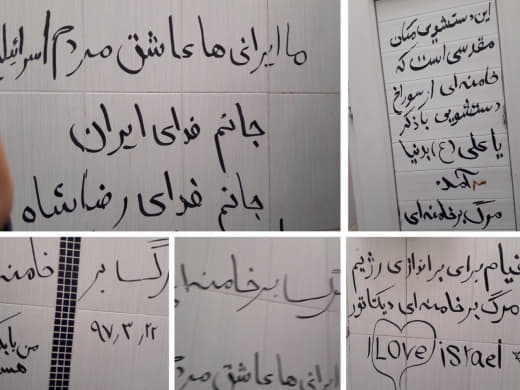 ما ایرانی ها عاشق مردم اسرائیل
جانم فدای ایران
جانم فدای رضا شاه
این دستشویی مکان
مقدسی است که
خامنه ای از سوراخ
دستشویی با ذکر
یا علی (ع) بدنیا
آمد.
مرگ بر خامنه ای
مرگ بر خامنه
۹۷٫۳٫۲۲
من بابک
هس
مرگ بر خامنه ای
ایرانی ها عاشق مرد
قیام برای براندازی رژیم
مرگ بر خامنه ای دیکتاتور
I Love israel